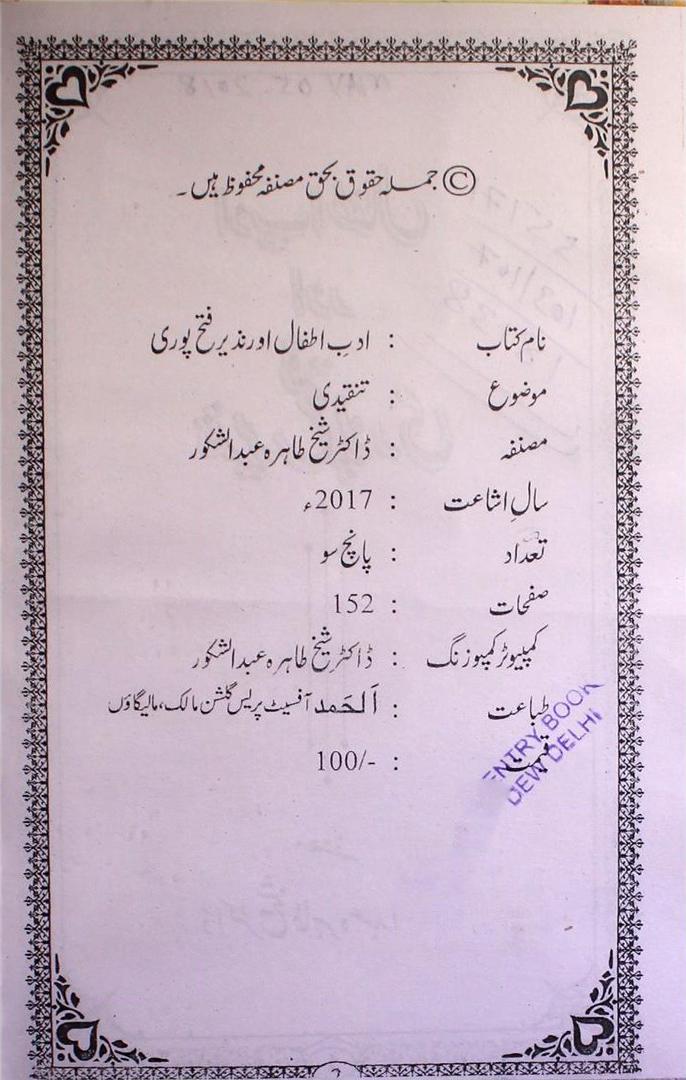 © جملہ حقوق بحق مصنفہ محفوظ ہیں۔
نام کتاب : ادبِ اطفال اور نذیر فتح پوری
موضوع : تنقیدی
مصنفہ : ڈاکٹر شیخ طاہرہ عبدالشکور
سالِ اشاعت : 2017ء
تعداد : پانچ سو
صفحات : 152
کمپیوٹر کمپوزنگ : ڈاکٹر شیخ طاہرہ عبدالشکور
طباعت : اَلحَمد آفسیٹ پریس گلشن مالک، مالیگاؤں
قیمت : 100/-
ENTRY BOOK
DEW DELHI